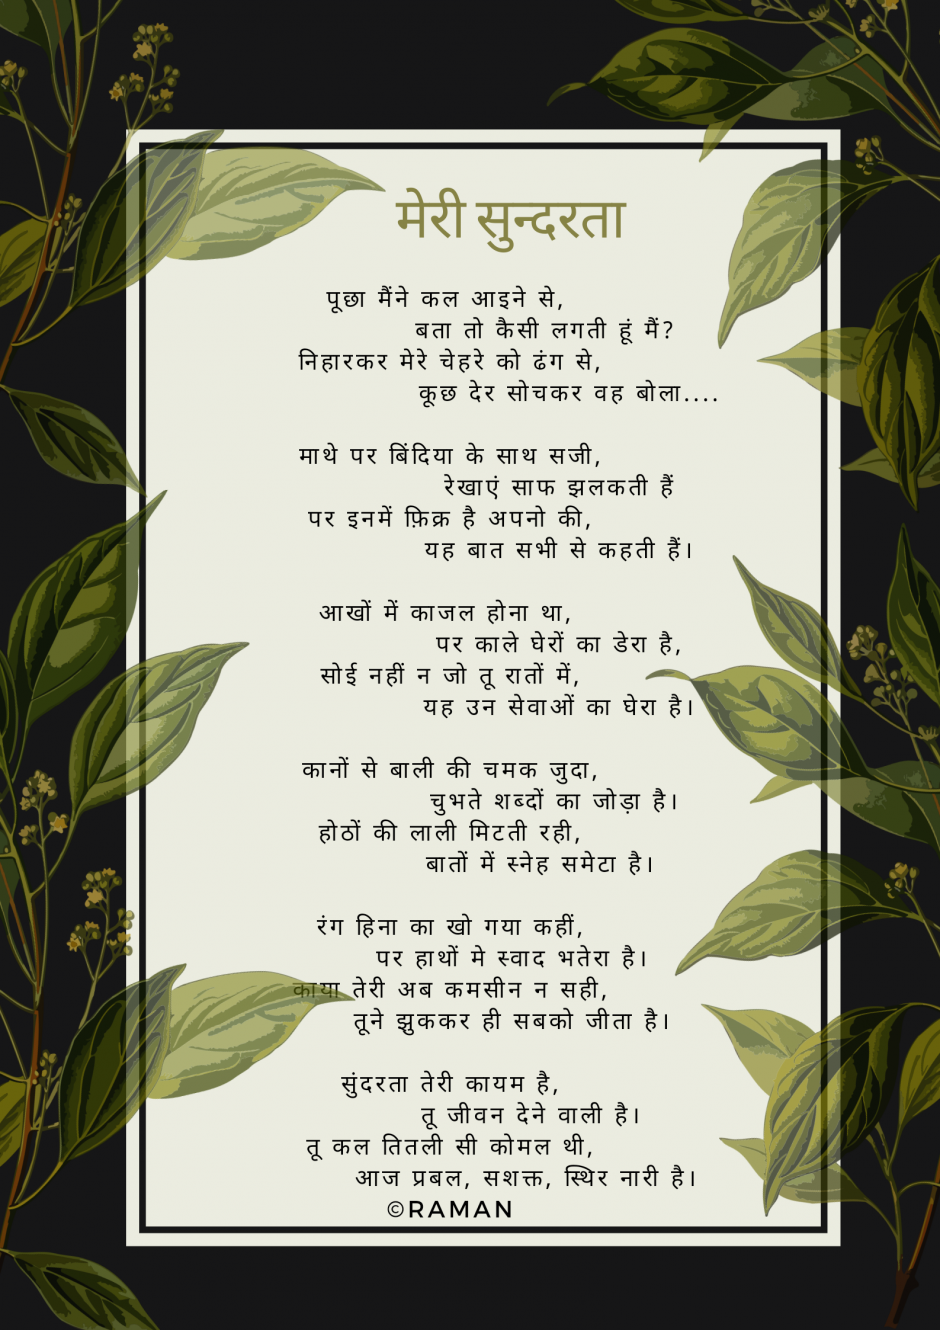 मेरी सुन्दरता
पूछा मैंने कल आइने से,
बता तो कैसी लगती हूं मैं?
निहारकर मेरे चेहरे को ढंग से,
कूछ देर सोचकर वह बोला....
माथे पर बिंदिया के साथ सजी,
रेखाएं साफ झलकती हैं
पर इनमें फ़िक्र है अपनो की,
यह बात सभी से कहती हैं।
आखों में काजल होना था,
पर काले घेरों का डेरा है,
सोई नहीं न जो तू रातों में,
यह उन सेवाओं का घेरा है।
कानों से बाली की चमक जुदा,
चुभते शब्दों का जोड़ा है।
होठों की लाली मिटती रही,
बातों में स्नेह समेटा है।
रंग हिना का खो गया कहीं,
पर हाथों मे स्वाद भतेरा है।
काया तेरी अब कमसीन न सही,
तूने झुककर ही सबको जीता है।
सुंदरता तेरी कायम है,
तू जीवन देने वाली है।
तू कल तितली सी कोमल थी,
आज प्रबल, सशक्त, स्थिर नारी है।
©RAMAN